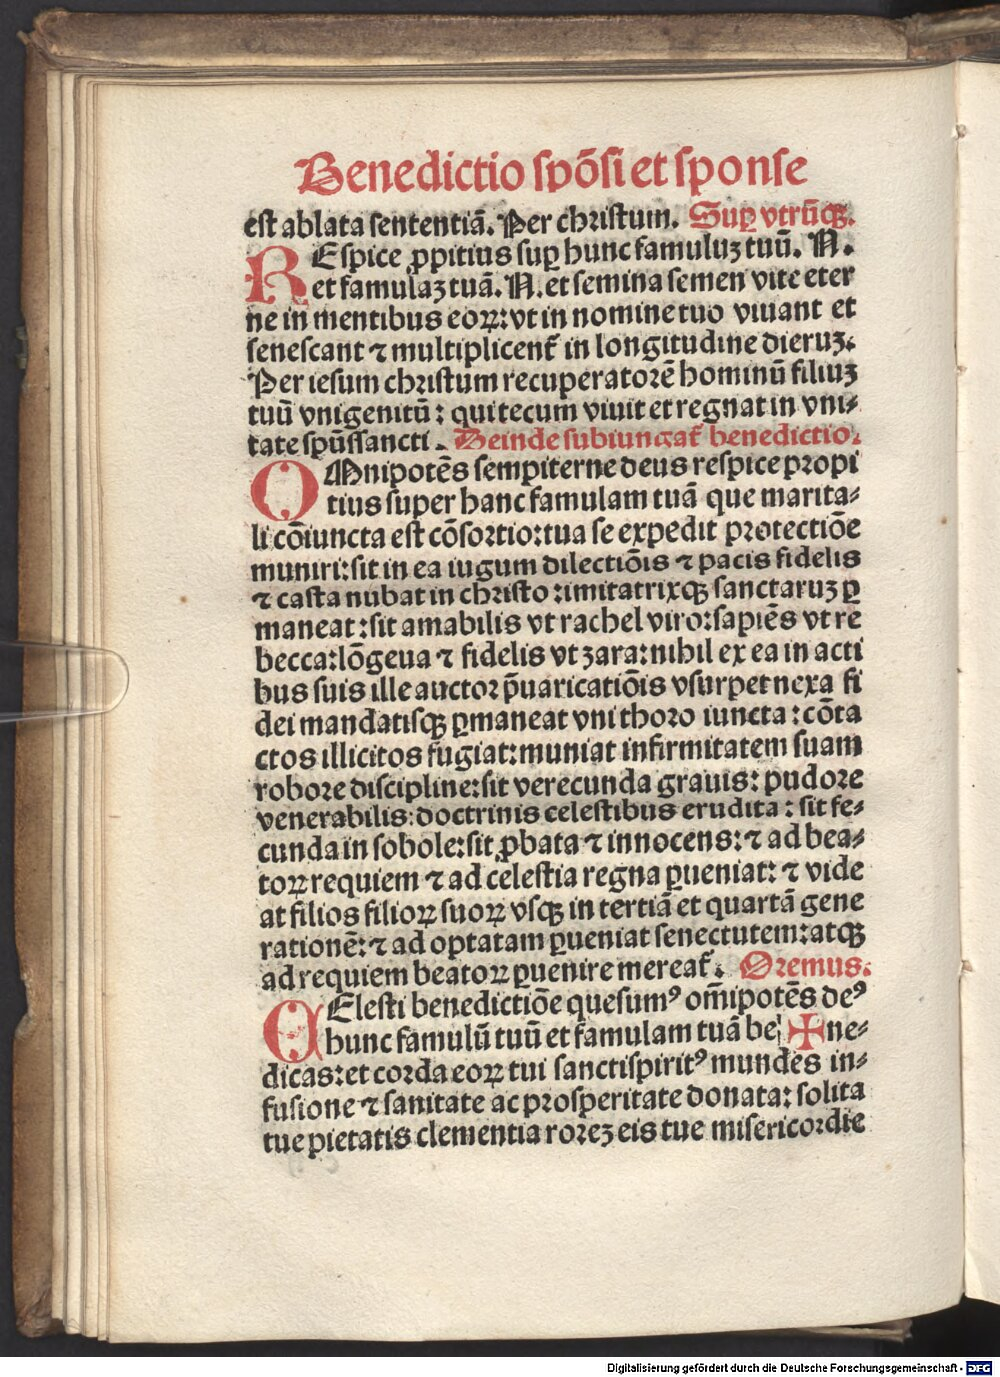 Benedictio spōsi et sponse
est ablata sententiā. Per christum. Suꝑ vtrūqꝫ.
REspice ꝓpitius suꝑ hunc famuluꝫ tuū. N.
et famulaꝫ tuā. N. et semina semen vite eter
ne in mentibus eoꝝ: vt in nomine tuo viuant et
senescant ⁊ multiplicent᷑ in longitudine dieruꝫ.
Per iesum christum recuperatorē hominū filiuꝫ
tuū vnigenitū: qui tecum viuit et regnat in vni-
tate spūssancti. Deinde subiungat᷑ benedictio.
OMnipotēs sempiterne deus respice propi
tius super hanc famulam tuā que marita-
li cōiuncta est cōsortio: tua se expedit protectiōe
muniri: sit in ea iugum dilectiōis ⁊ pacis fidelis
⁊ casta nubat in christo: imitatrixqꝫ sanctaruꝫ ꝑ
maneat: sit amabilis vt rachel viro: sapiēs vt re
becca: lōgeua ⁊ fidelis vt zara: nihil ex ea in acti
bus suis ille auctor p̄uaricatiōis vsurpet nexa fi
dei mandatisqꝫ ꝑmaneat vni thoro iuncta: cōta
ctos illicitos fugiat: muniat infirmitatem suam
robore discipline: sit verecunda grauis: pudore
venerabilis: doctrinis celestibus erudita: sit fe-
cunda in sobole: sit ꝓbata ⁊ innocens: ⁊ ad bea-
toꝝ requiem ⁊ ad celestia regna ꝑueniat: ⁊ vide
at filios filioꝝ suoꝝ vsqꝫ in tertiā et quartā gene
rationē: ⁊ ad optatam ꝑueniat senectutem: atqꝫ
ad requiem beatoꝝ ꝑuenire mereat᷑. Oremus.
CElesti benedictiōe quesumꝰ om̄ipotēs deꝰ
hunc famulū tuū et famulam tuā be ✠ ne-
dicas: et corda eoꝝ tui sanctispiritꝰ mundes in-
fusione ⁊ sanitate ac prosperitate donata: solita
tue pietatis clementia roreꝫ eis tue misericordie
Digitalisierung gefördert durch die Deutsche Forschungsgemeinschaft - DFG